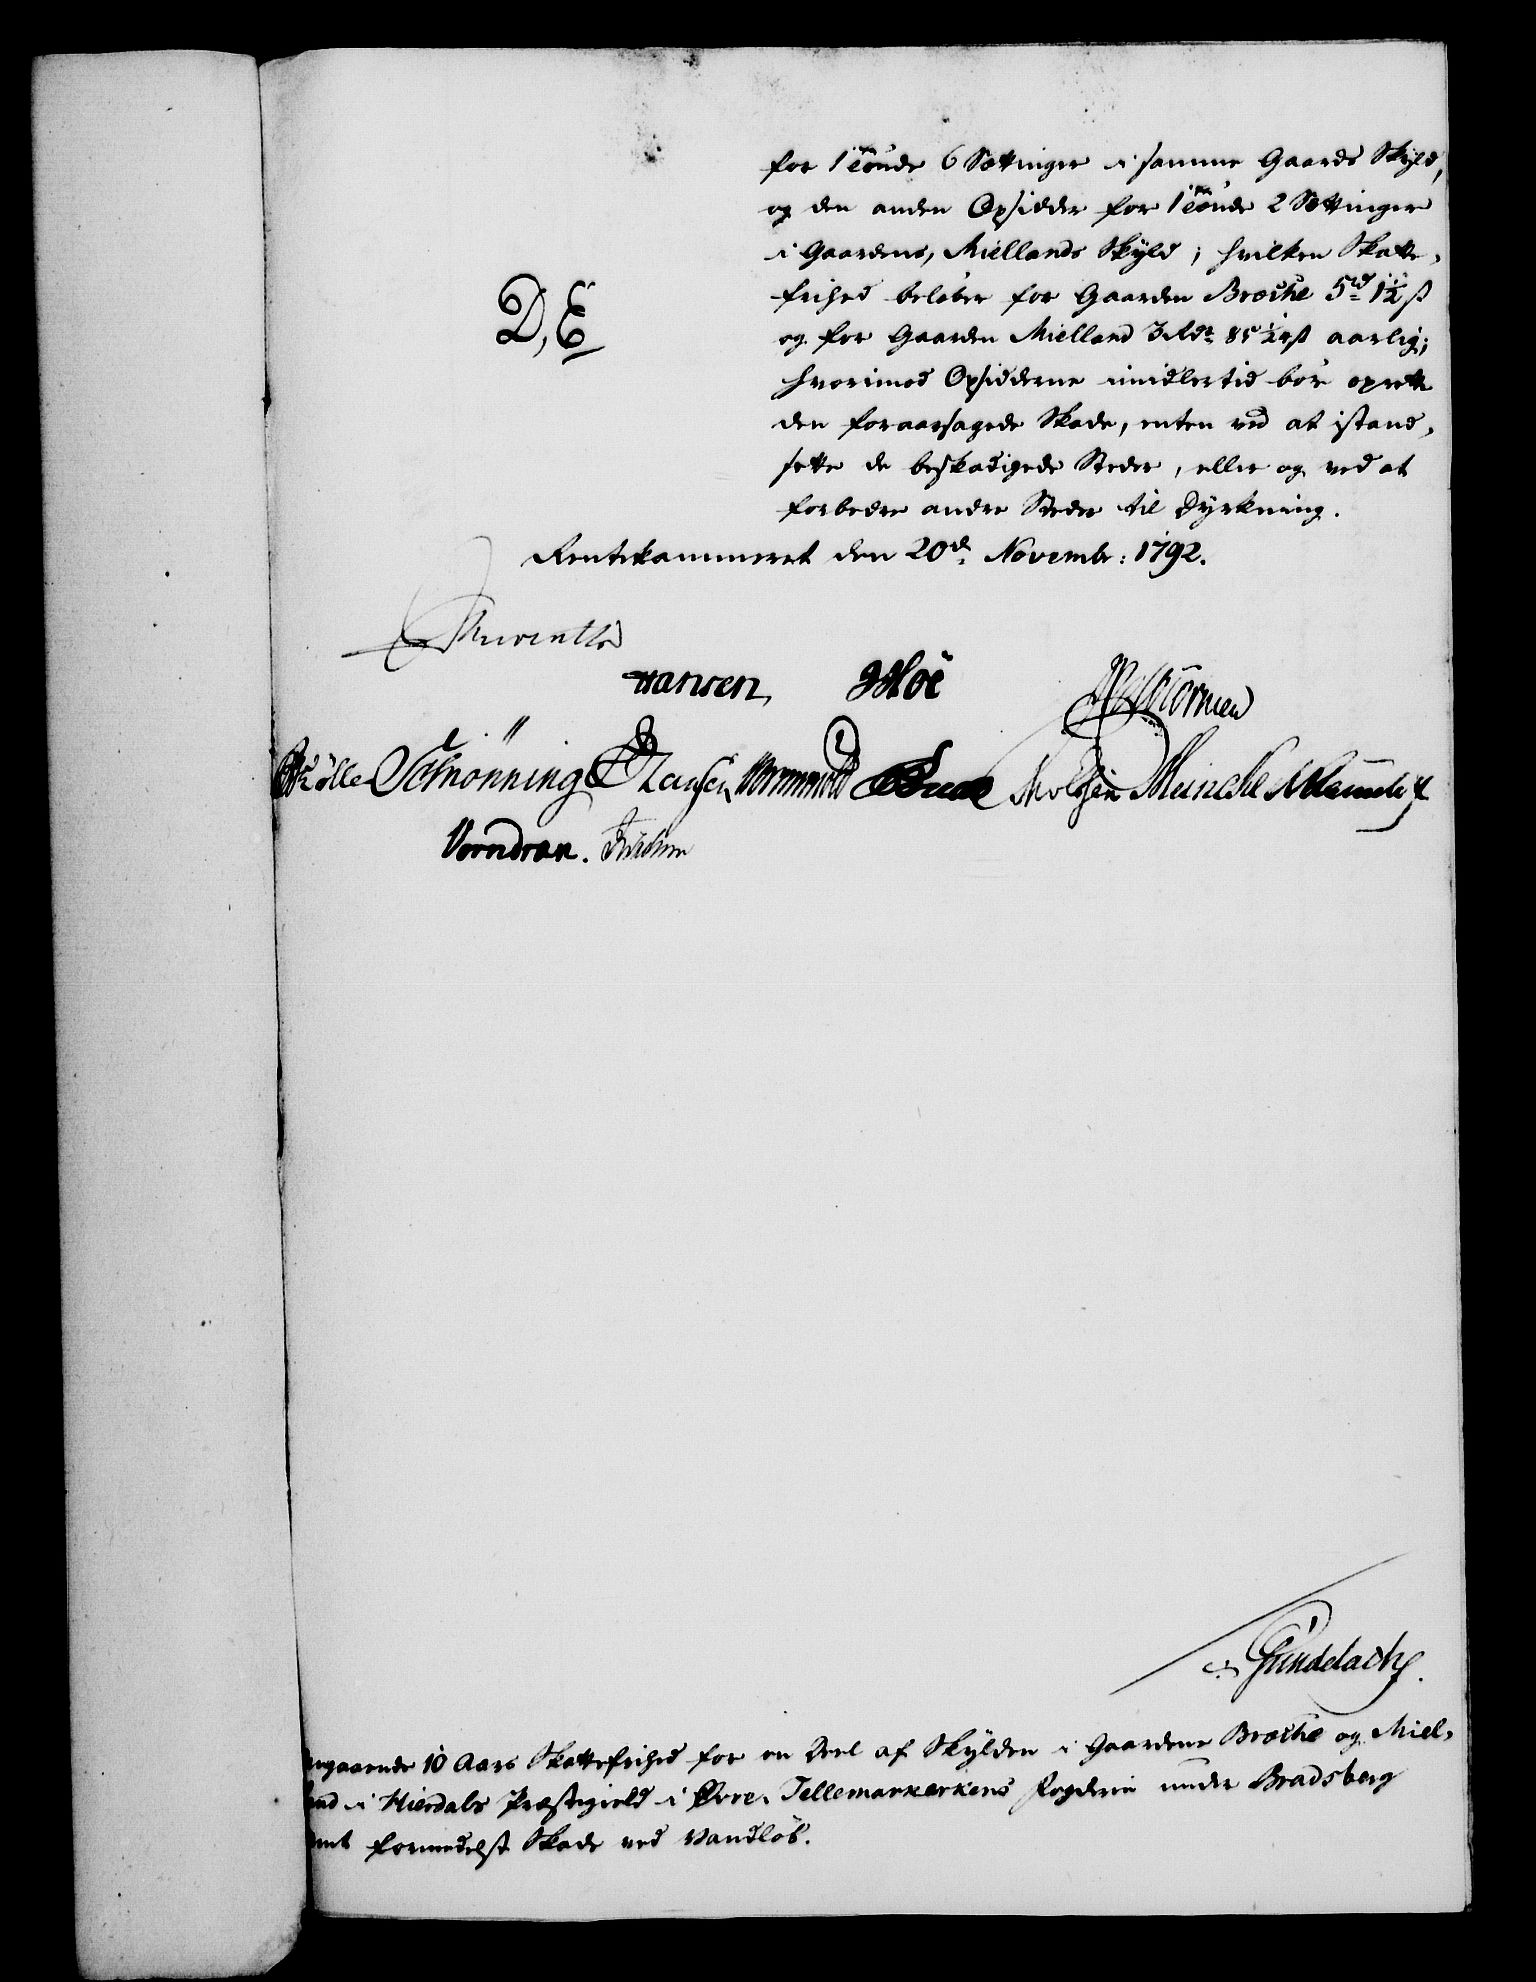 for 1 Tönde 6 Sættinger i samme Gaards Skyld,
og den anden Opsidder for 1 Tönde 2 Sættinger
i Gaardens, Miellands Skyld; hvilken Skatte-
frihed beløber for Gaarden Broche 5 rd 1½ ß
D, E
og for Gaarden Mielland 3 Rdr 85½ ß aarlig;
hvorimod Opsidderne imidlertid bør oprette
den foraarsagede Skade, enten ved at istand-
sette de beskadigede Steder, eller og ved at
forbedre andre Steder til Dyrkning.
Rentekammeret den 20de Novembr: 1792.
Reventlo
Hansen
Schönning Hansen Wormskiold Meinche
Vorndran.
Gundelach
ngaaende 10 Aars Skattefrihed for en Deel af Skylden i Gaardene Broche og Miel-
land i Hierdals Præstegield i Øvre Tellemarkens Fogderie under Bradsberg
Amt formedelst Skade ved Vandløb.